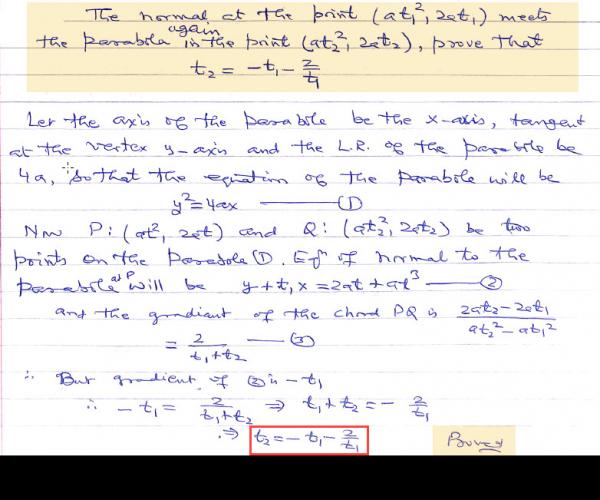 The normal at the point (at₁², 2at₁) meets
again
the parabola in the point (at₂², 2at₂), prove that
t₂ = -t₁ - 2/t₁
Let the axis of the parabola be the x-axis, tangent
at the vertex y-axis and the L.R. of the parabola be
4a, so that the equation of the parabola will be
y² = 4ax ——— (1)
Now P: (at², 2at) and Q: (at₂², 2at₂) be two
points on the parabola (1). Eqⁿ of normal to the
at P
parabola will be y + t₁x = 2at + at³ ——— (2)
and the gradient of the chord PQ is (2at₂ - 2at₁)/(at₂² - at₁²)
= 2/(t₁ + t₂) —— (3)
∴ But gradient of (2) is - t₁
∴ - t₁ = 2/(t₁ + t₂) ⇒ t₁ + t₂ = - 2/t₁
∴ ⇒ t₂ = - t₁ - 2/t₁ Proved